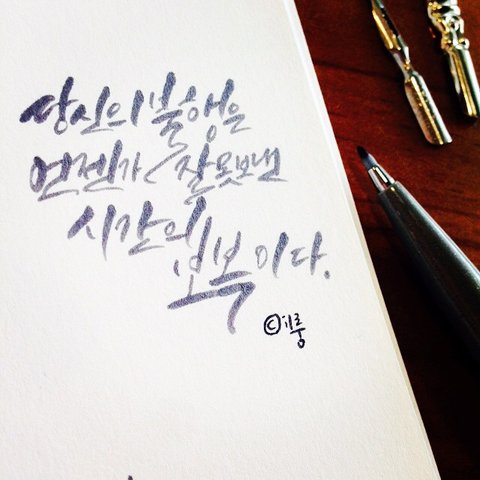 당신의 불행은
언젠가 잘못보낸
시간의
보복이다.